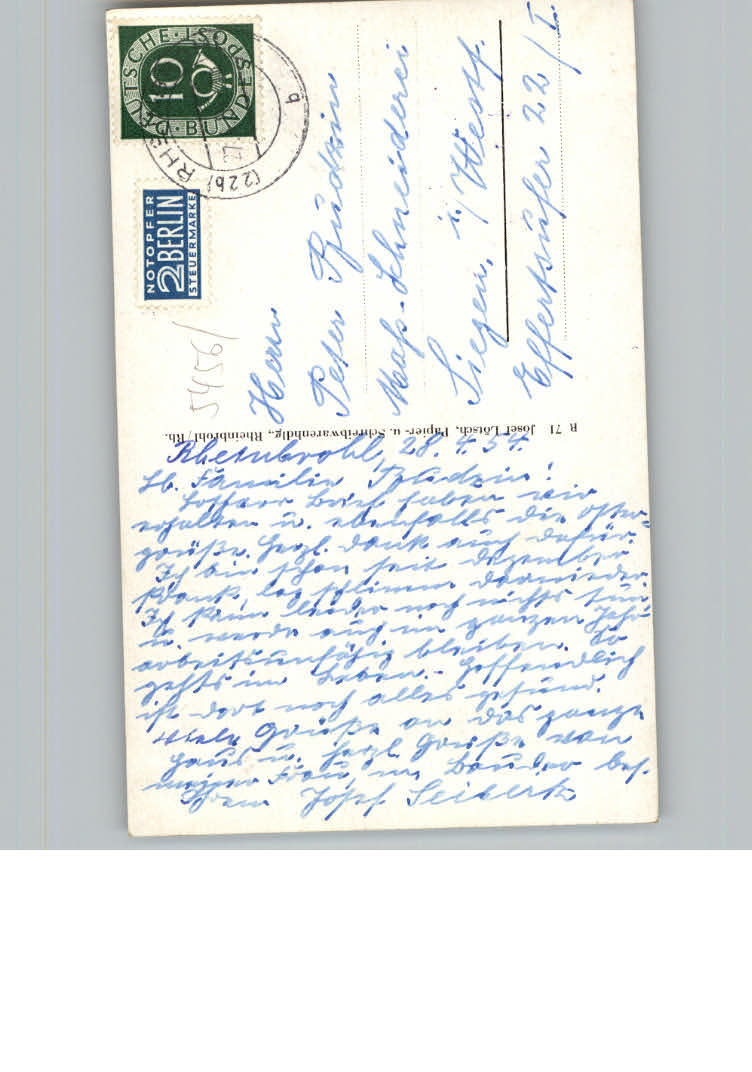 DEUTSCHE BUNDESPOST
10
(22b) RHEIN
b
NOTOPFER
2 BERLIN
STEUERMARKE
5456/
Herrn
Peter
Maß-Schneiderei
Siegen, i/Westf.
Effertsufer 22/I
R 71 Josef Lötsch, Papier- u. Schreibwarenhdlg., Rheinbrohl/Rh.
Rheinbrohl, 28.4.54.
Lb. Familie
Brief haben wir
erhalten u. ebenfalls die Oster=
grüße. Herzl. Dank auch dafür.
Ich bin schon seit Dezember
krank, lag schlimm darnieder.
Ich kann leider noch nichts tun
u. werde auch im ganzen Jahr
arbeitsunfähig bleiben. So
gehts im Leben. - Hoffendlich
ist dort noch alles gesund.
Viele Grüße an das ganze
Haus u. herzl. Grüße von
meiner Frau, m. Bruder bes.
Ihrem Josef Seibert